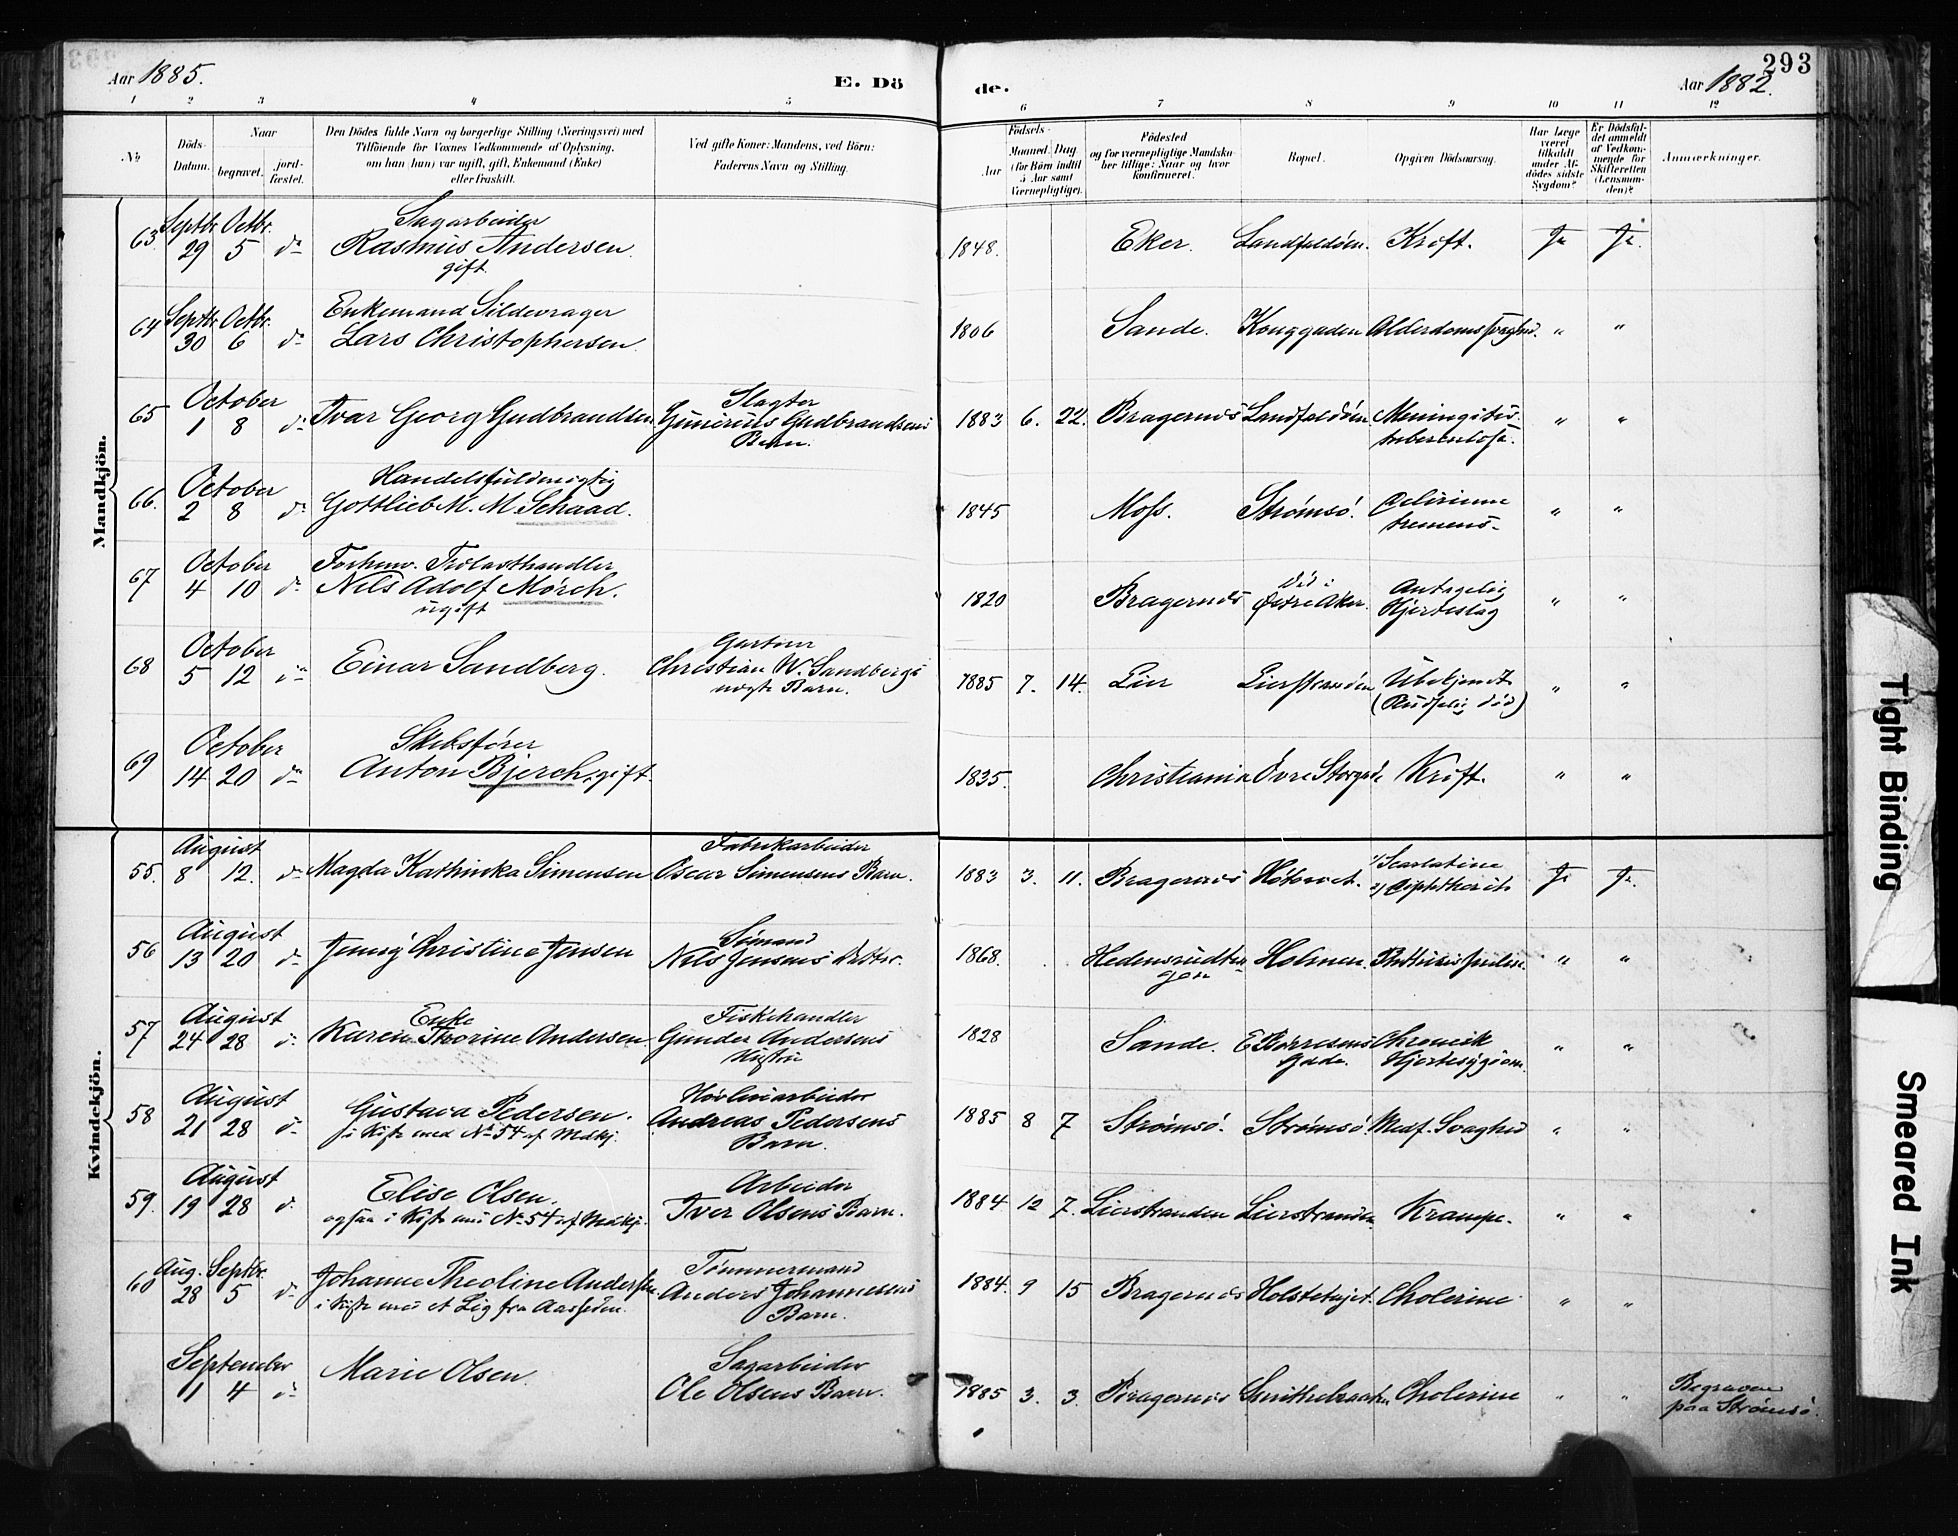 293
Aar 1885.
E. Dö
de.
Aar 1882.
1 2 3 4 5 6 7 8 9 10 11 12
№
Döds-Datum.
Naar
begravet.
jord-fæstet.
Den Dödes fulde Navn og borgerlige Stilling (Næringsvei) med
Tilföiende for Voxnes Vedkommende af Oplysning,
om han (hun) var ugift, gift, Enkemand (Enke)
eller fraskilt.
Ved gifte Koner: Mandens, ved Börn:
Faderens Navn og Stilling.
Födsels-
Aar
Maaned Dag
(for Börn indtil
5 Aar samt
Værnepligtige).
Födested
og for værnepligtige Mandskaber tillige: Naar og hvor konfirmeret.
Bopæl.
Opgiven Dödsaarsag.
Har Læge været tilkaldt under Afdödes sidste Sygdom?
Er Dödsfaldet anmeldt af Vedkommende for Skifteretten (Lensmanden)?
Anmærkninger.
Mandkjön.
63 Septbr. 29 Octbr. 5 do Sagarbeider
Rasmus Andersen
gift.
1848. Eker. Landfaldöen. Kræft. Ja Ja.
64 Septbr. 30 Octbr. 6 do Enkemand Sildevrager
Lars Christophersen.
1806 Sande. Konggaden Alderdomssvaghed. " "
65 October 1 8 do Ivar Georg Gudbrandsen
Slagter
Gunerius Gudbrandsens
Barn.
1883 6. 22. Bragernes Landfaldöen Meningitis
tuberculosa. " "
66. October 2 8 do Handelsfuldmægtig
Gottlieb M. M. Schaad.
1845 Moss. Strømsö. Delirium
tremens. " "
67 October 4 10 do Forhenv. Trælasthandler
Nils Adolf Mörch.
ugift
1820 Bragernes Död i
Østre Aker. Antagelig
Hjerteslag " "
68 October 5 12 do Einar Sandberg.
Gartner
Christian W. Sandbergs
uægte Barn.
1885 7. 14. Lier Lierstranden Ubekjendt
(Pludselig död) " "
69 October 14 20 do Skibsförer
Anton Bjerch, gift.
1835. Christiania Övre Storgade Kræft. " "
Kvindekjön.
55. August 8 12. do Magda Kathinka Simensen
Fabrikarbeider
Oscar Simensens Barn.
1883 3. 11. Bragernes 1/ Scarlatina
2/ Ja Ja.
56 August 13 20 do Jenny Christine Jensen
Sömand
Nils Jensens Datter.
1868. Holmen. " "
57 August 24 28 do Enke
Karen Thorine Andersen
Fiskehandler
Gunder Andersens
Hustru
1828 Sande. E Börresens
Gade. Chronisk
Hjertesygdom. " "
58 August 21 28 do Gustava Pedersen.
i Kiste med No 54 af Mdkj.
Høvleriarbeider
Andreas Pedersens
Barn.
1885 8 7 Strømsö. Strømsö. Medf. Svaghed " "
59. August 19 28 do Elise Olsen.
ogsaa i Kiste med No 54 af Mdkj.
Arbeider
Iver Olsens Barn.
1884 12 7. Lierstranden Lierstranden Krampe. " "
60 Aug. 28 Septbr. 5 do Johanne Theoline Andersen.
i Kiste med et Lig fra Aassiden.
Tömmermand
Anders Johannesens
Barn.
1884. 9 15 Bragernes Cholerine " "
September 1 4 do Marie Olsen.
Sagarbeider
Ole Olsens Barn.
1885 3. 3. Bragernes Cholerine " " Begraven
paa Strömsö.
Tight Binding
Smeared Ink